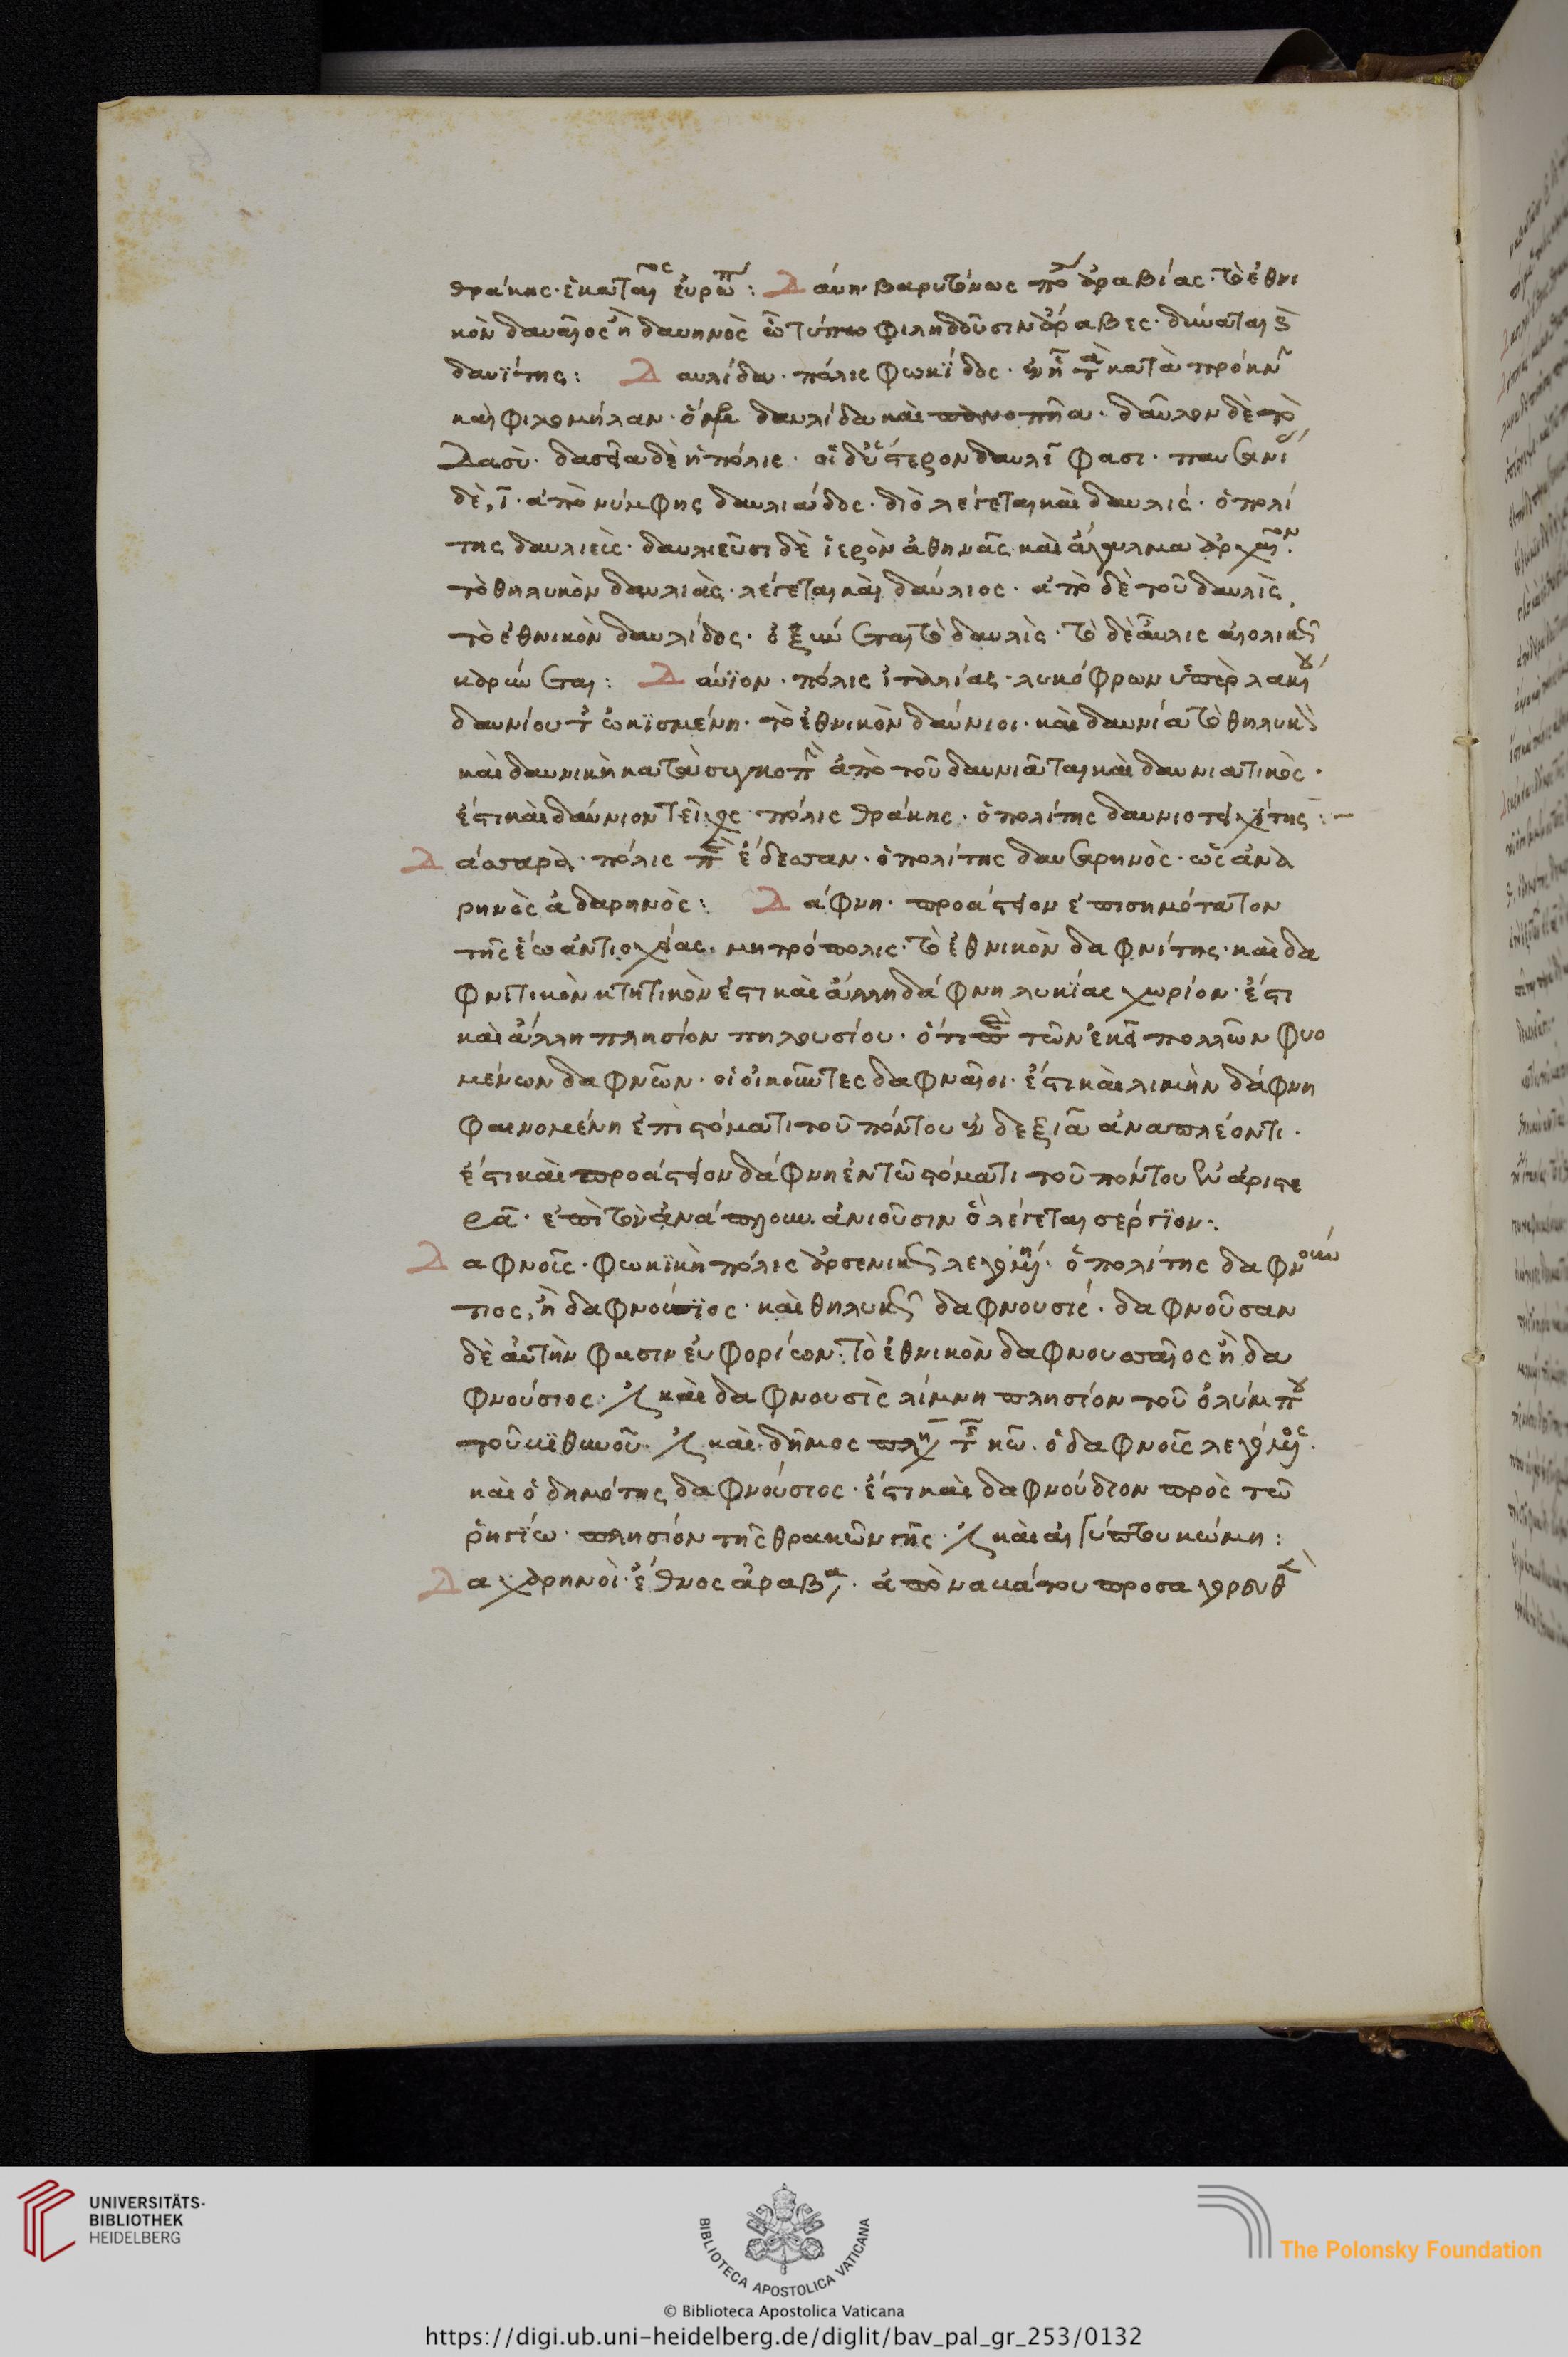 θράκης· ἑκαταῖος εὐρώπη: Δαύη· βαρυτόνως πόλις ἀραβίας· τὸ ἐθνι
κὸν δαυαῖος ἢ δαυηνὸς ὧ τύπω φιληδοῦσιν ἄραβες· δύναται
δαυΐτης: Δαυλίδα· πόλις φωκΐδος· ἐν ἧ τὰ κατὰ πρόκνην
καὶ φιλομήλαν· δαυλίδα καὶ δαῦλον δὲ τὸ
Δασύ· δασεῖα δὲ ἡ πόλις· οἱ δ' ὕστερον δαυλί φασι· παυσανί
δὲ, ι· ἀπὸ νύμφης δαυλιάδος· διὸ λέγεται καὶ δαυλίς· ὁ πολί
της δαυλιεὶς· δαυλιεῦσι δὲ ἱερὸν ἀθηνᾶς καὶ ἄγαλμα ἀρχαῖον·
τὸ θηλυκὸν δαυλιὰς· λέγεται καὶ δαύλιος· ἀπὸ δὲ τοῦ δαυλὶς
τὸ ἐθνικὸν δαυλίδος· ὀξύνεται τὸ δαυλὶς· τὸ δὲ αὖλις αἰολικῶς
βαρύνεται: Δαύϊον· πόλις ἰταλίας· λυκόφρων
δαυνίου ὠκϊσμένη· τὸ ἐθνικὸν δαύνιοι· καὶ δαυνία τὸ θηλυκὸν
καὶ δαυνικὴ κατὰ συγκοπὴν ἀπὸ τοῦ δαυνιᾶται καὶ δαυνιατικὸς·
ἔστι καὶ δαύνιον τεῖχος πόλις θράκης· ὁ πολίτης δαυνιοτειχίτης:-
Δαύσαρα· πόλις περὶ ἔδεσαν· ὁ πολίτης δαυσαρηνὸς· ὡς ἀνα
ρηνὸς ἀδαρηνὸς: Δάφνη· προάστειον ἐπισημότατον
τῆς ἑώ ἀντιοχείας· μητρόπολις· τὸ ἐθνικὸν δαφνίτης· καὶ δα
φνιτικὸν κτητικὸν ἔστι καὶ ἄλλη δάφνη λυκΐας χωρίον· ἔστι
καὶ ἄλλη πλησίον πηλουσίου· ὅτι τῶν ἐκεῖ πολλῶν φυο
μένων δαφνῶν· οἱ οἰκοῦντες δαφναῖοι· ἔστι καὶ λιμὴν δάφνη
φαινομένη ἐπὶ στόματι τοῦ πόντου ἐν δεξιᾶ ἀναπλέοντι·
ἔστι καὶ προάστειον δάφνη ἐν τῶ στόματι τοῦ πόντου ἐν ἀριστε
ρᾶ· ἐπὶ τὸν ἀνάπλουν ἀνιοῦσιν ὃ λέγεται σέργϊον:.
Δαφνοῖς· φωκϊκὴ πόλις ἀρσενικῶς λεγομένη· ὁ πολίτης δαφνούν
τιος, ἢ δαφνούσϊος· καὶ θηλυκῶς δαφνουσίς· δαφνοῦσαν
δὲ αὐτὴν φασιν εὐφορίων· τὸ ἐθνικὸν δαφνουσαῖος ἢ δα
φνούσιος· ἔστι καὶ δαφνουσὶς λίμνη πλησίον τοῦ ὀλύμπου
τοῦ κϊθυνοῦ· ἔστι καὶ δῆμος κῶ· ὁ δαφνοῖς λεγόμενος·
καὶ ὁ δημότης δαφνούσιος· ἔστι καὶ δαφνούδιον πρὸς τῶ
ῥηγΐω· πλησίον τῆς θρακῶν γῆς· ἔστι καὶ αἰγύπτου κώμη:
Δαχαρηνοὶ· ἔθνος ἀραβ· ἀπὸ μακάτου προσαγορευθὲν
UNIVERSITÄTS-
BIBLIOTHEK
HEIDELBERG
BIBLIOTECA APOSTOLICA VATICANA
The Polonsky Foundation
© Biblioteca Apostolica Vaticana
https://digi.ub.uni-heidelberg.de/diglit/bav_pal_gr_253/0132